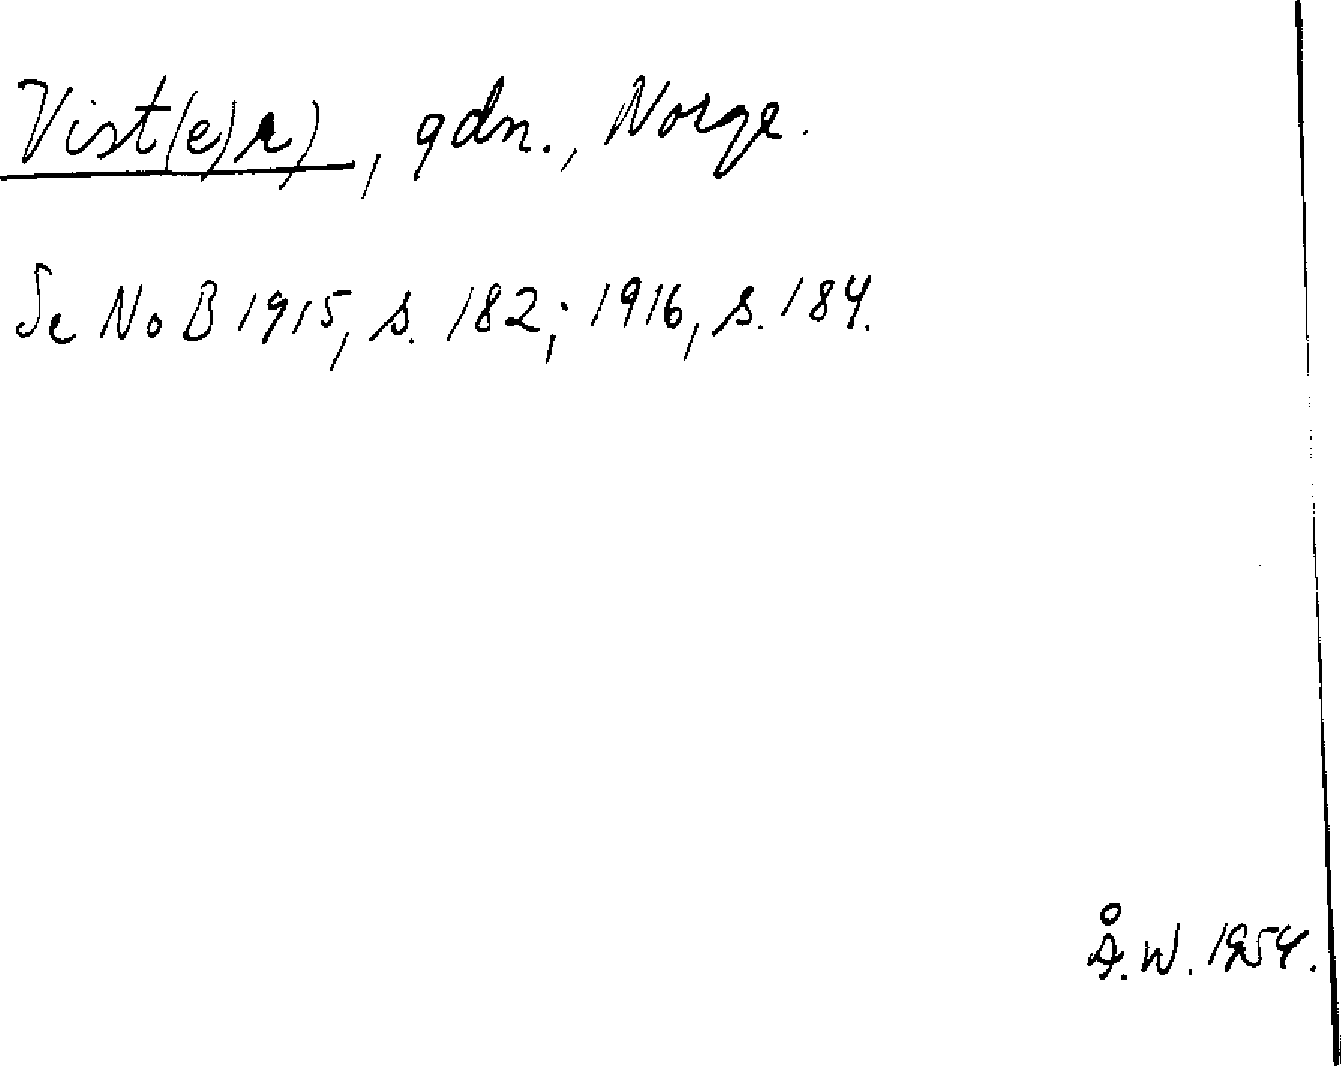 Vist(e)r), gdn., Norge.
Se NoB 1915, s. 182; 1916, s. 184.
Å.W. 1954.